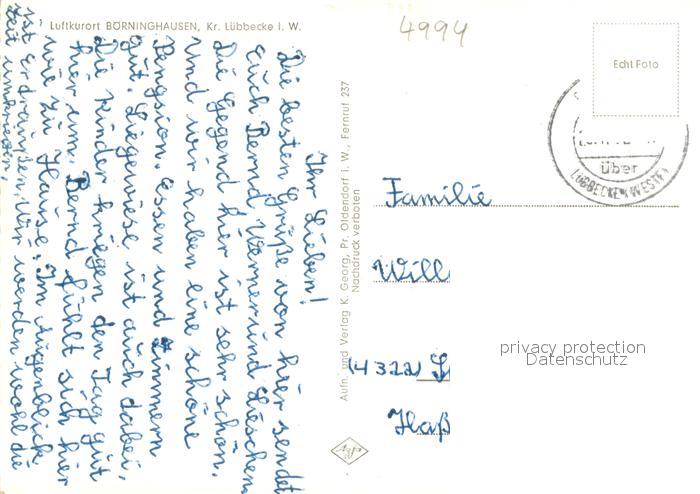 Luftkurort BÖRNINGHAUSEN, Kr. Lübbecke i. W.
4994
Echt Foto
über
LÜBBECKE (WESTF)
Ihr Lieben!
Die besten Grüße von hier sendet
Euch Bernd Werner und Lieschen.
Die Gegend hier ist sehr schön.
Und wir haben eine schöne
Pension. Essen und Zimmern
gut. Liegewiese ist auch dabei.
Die Kinder kriegen den Tag gut
hier um. Bernd fühlt sich hier
wie zu Hause. Im Augenblick
ist Er draußen. Wir werden wohl die
Zeit umkriegen.
Aufn. und Verlag K. Georg, Pr. Oldendorf i. W., Fernruf 237
Nachdruck verboten
Agfa
Familie
Will
(4322)
Haß
privacy protection
Datenschutz